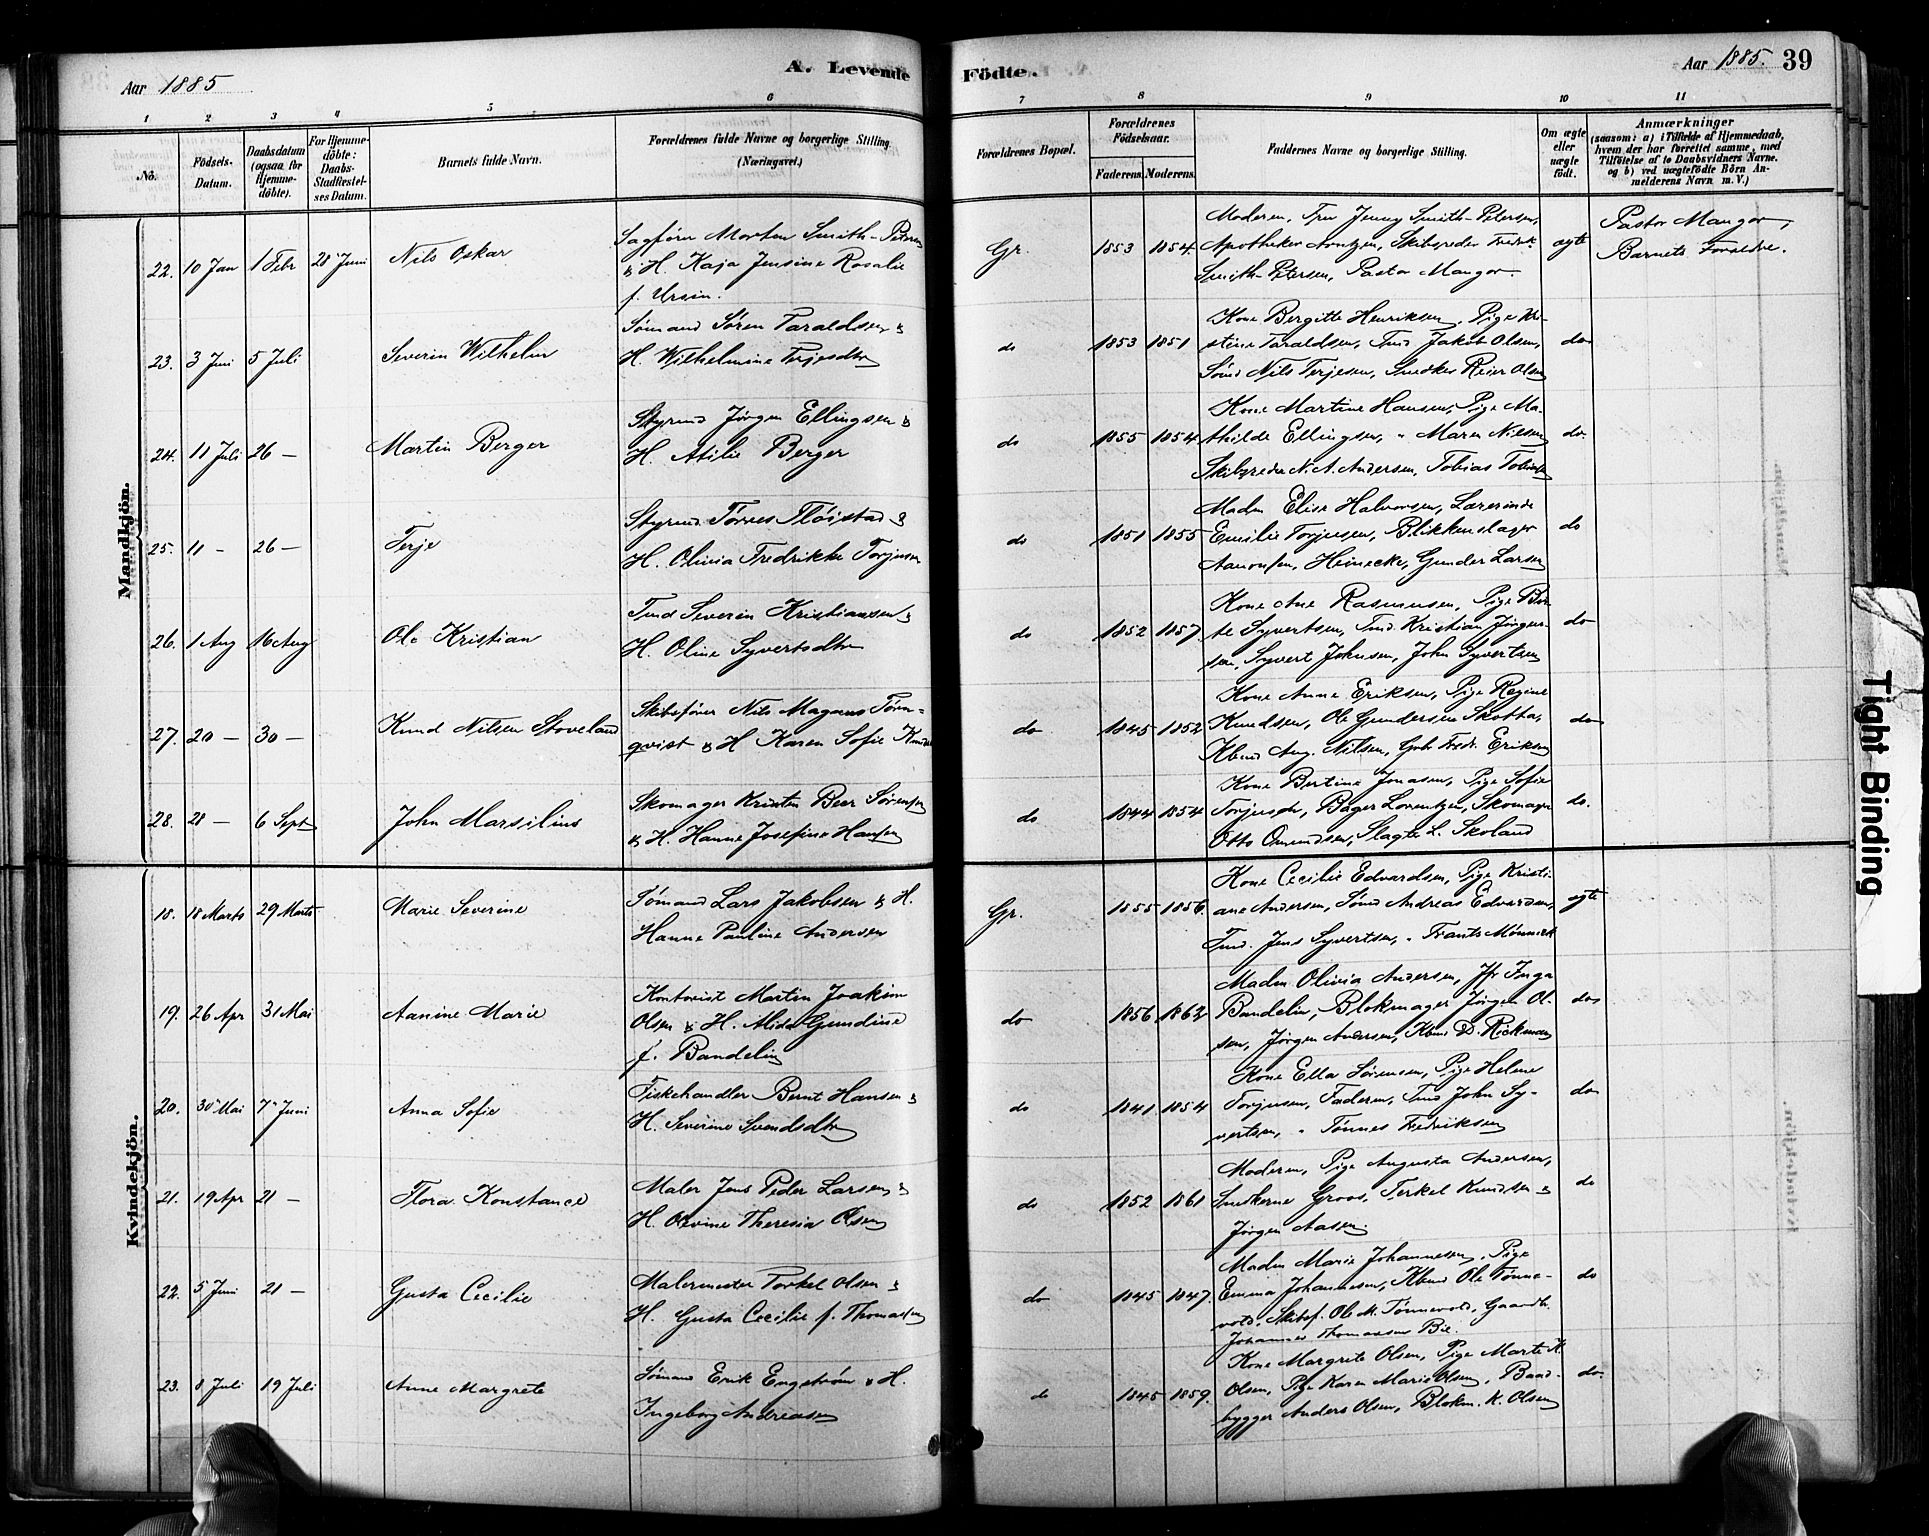 Aar 1885
A. Levende Födte.
Aar 1885. 39
1 2 3 4 5 6 7 8 9 10 11
No.
Födsels-Datum.
Daabsdatum (ogsaa for Hjemme-döbte).
For Hjemme-döbte: Daabs-Stadfæstel-ses Datum.
Barnets fulde Navn.
Forældrenes fulde Navne og borgerlige Stilling (Næringsvei.)
Forældrenes Bopæl.
Forældrenes Födselsaar.
Faderens. Moderens.
Faddernes Navne og borgerlige Stilling.
Om ægte eller uægte födt.
Anmærkninger
(saasom: a) i Tilfælde af Hjemmedaab, hvem der har forrettet samme, med Tilföielse af to Daabsvidners Navne. og b) ved uægtefödte Börn An-melderens Navn m. V.)
Mandkjön.
22. 10 Jan 1 Febr 28 Juni Nils Oskar
Sagfører Morten Smith-Petersen
& H. Kaja Jensine Rosalie
f. Ursin.
Gr. 1853 1854
Moderen, Fru Jenny Smith-Petersen,
Apotheker Arntzen, Skibsreder Fredrk
Smith-Petersen, Pastor Mangor
ægte
Pastor Mangor,
Barnets Forældre.
23. 3 Juni 5 Juli Severin Wilhelm
Sømand Søren Taraldsen &
H. Wilhelmine Terjesdtr
do 1853 1851
Kone Bergitte Henriksen, Pige Kri-
stine Taraldsen, Tmd Jakob Olsen,
Sømd Nils Terjesen, Snedker Reier Olsen
do
24. 11 Juli 26 — Martin Berger
Styrmd Jørgen Ellingsen &
H. Atilie Berger
do 1855 1854
Kone Martine Hansen, Pige Ma-
thilde Ellingsen, " Maren Nilsen
Skibsreder N. A. Andersen, Tobias Tobiassen
do.
25. 11 — 26 — Terje
Styrmd Tørres Fløistad &
H. Olivia Fredrikke Torjusen
do 1851 1855
Madm Elise Halvorsen, Lærerinde
Emilie Torjusen, Blikkenslager
Aanonsen, Heinecke, Gunder Larsen
do
26. 1 Aug 16 Aug Ole Kristian
Tmd Severin Kristiansen &
H. Oline Syvertsdtr
do 1852 1857
Kone Ane Rasmussen, Pige Ber-
te Syvertsen, Tmd. Kristian Jørgen-
sen, Syvert Johnsen, John Syvertsen
do
27. 20 — 30 — Knud Nilsen Stoveland
Skibsfører Nils Magnus Törn-
qvist & H Karen Sofie Knudsen
do 1845 1852
Kone Anne Eriksen, Pige Regine
Knudsen, Ole Gundersen Skotta,
Kbmd Aug. Nilsen, Fredr. Eriksen
do
28. 28 — 6 Sept John Marsilius
Skomager Kristen Beer Sørensen
& H. Hanne Josefine Hansen
do 1844 1854
Kone Bertine Jonasen, Pige Sofie
Torjusdr, Bager Lorentzen, Skomager
Otto Omundsen, Slagter L. Skoland
do.
Kvindekjön.
18. 18 Marts 29 Marts Marie Severine
Sømand Lars Jakobsen & H.
Hanne Pauline Andersen
Gr. 1855 1856.
Kone Cecilie Edvardsen, Pige Kristi
ane Andersen, Sømd Andreas Edvardsen,
Tmd. Jens Syvertsen, " Frants Mønnick
ægte
19. 26 Apr 31 Mai Aanine Marie
Kontorist Martin Joakim
Olsen & H. Alida Gundine
f. Bandelin
do 1856 1862
Madm Olivia Andersen, Jfr Inga
Bandelin, Blokmager Jørgen Ol-
sen, Jørgen Andersen, Kbmd D. Rickman
do
20. 30 Mai 7 Juni Anna Sofie
Fiskehandler Bernt Hansen &
H. Severine Svendsdtr
do 1841 1854
Kone Ella Sørensen, Pige Helene
Torjusen, Faderen, Tmd John Sy-
vertsen, " Tønnes Fredriksen
do
21. 19 Apr 21 — Flora Konstance
Maler Jens Peder Larsen &
H. Olevine Theresia Olsen
do 1852 1861
Moderen, Pige Augusta Andersen,
Snedkerne Groos, Terkel Knudsen &
Jørgen Aasen.
do
22. 5 Juni 21 — Gusta Cecilie
Malermester Torkel Olsen &
H. Gusta Cecilie f. Thomassen
do 1845 1847.
Madm Marie Johannesen, Pige
Emma Johannesen, Kbmd Ole Tønne-
vold, Skibsf. Ole M. Tønnevold, Gaardb.
Johannes Thomassen Bie.
do
23. 8 Juli 19 Juli Anne Margrete
Sømand Erik Engström & H.
Ingeborg Andreasen
do 1845 1859.
Kone Margrete Olsen, Pige Marte K.
Olsen, Pige Karen Marie Olsen, Baad-
bygger Anders Olsen, Blokm. K. Olsen
do.
Tight Binding